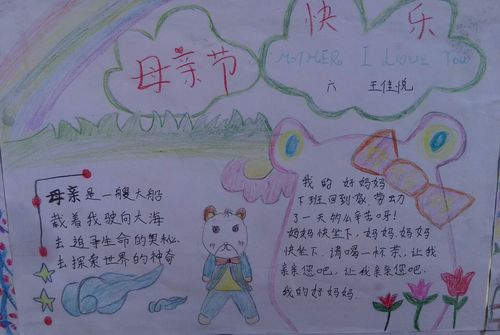 母亲节
快乐
MOTHER I LOVE You
六 王佳悦
母亲是一艘大船
载着我驶向大海
去追寻生命的奥秘
去探索世界的神奇
我的好妈妈
下班回到家劳动
了一天的么辛苦呀!
妈妈快坐下,妈妈,妈妈
快坐下,请喝一杯茶,让我
亲亲您吧,让我亲亲您吧.
我的好妈妈.